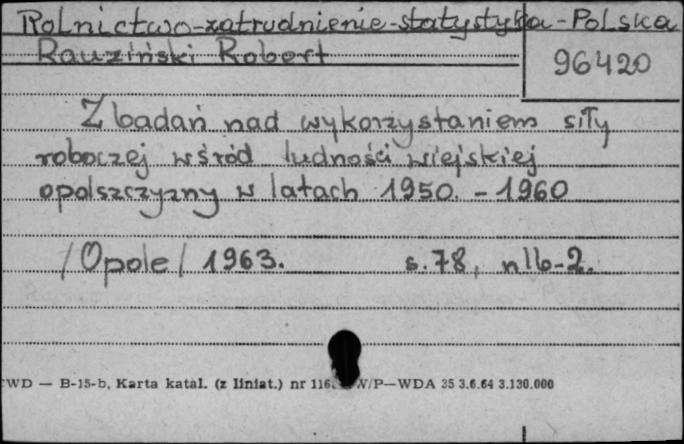 Rolnictwo-zatrudnienie-statystyka-Polska
Rauziński Robert
96420
Z badań nad wykorzystaniem siły
roboczej wśród ludności wiejskiej
opolszczyzny w latach 1950.-1960
/Opole/ 1963. s.78, nlb-2.
WD — B-15-b, Karta katal. (z liniat.) nr 116 W/P—WDA 35 3.6.64 3.130.000